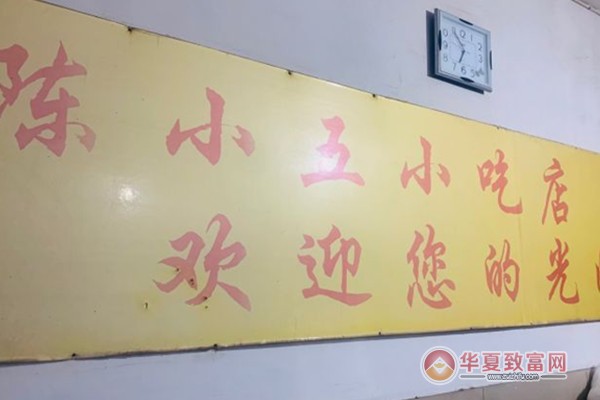 陈小五小吃店
欢迎您的光
华夏致富网